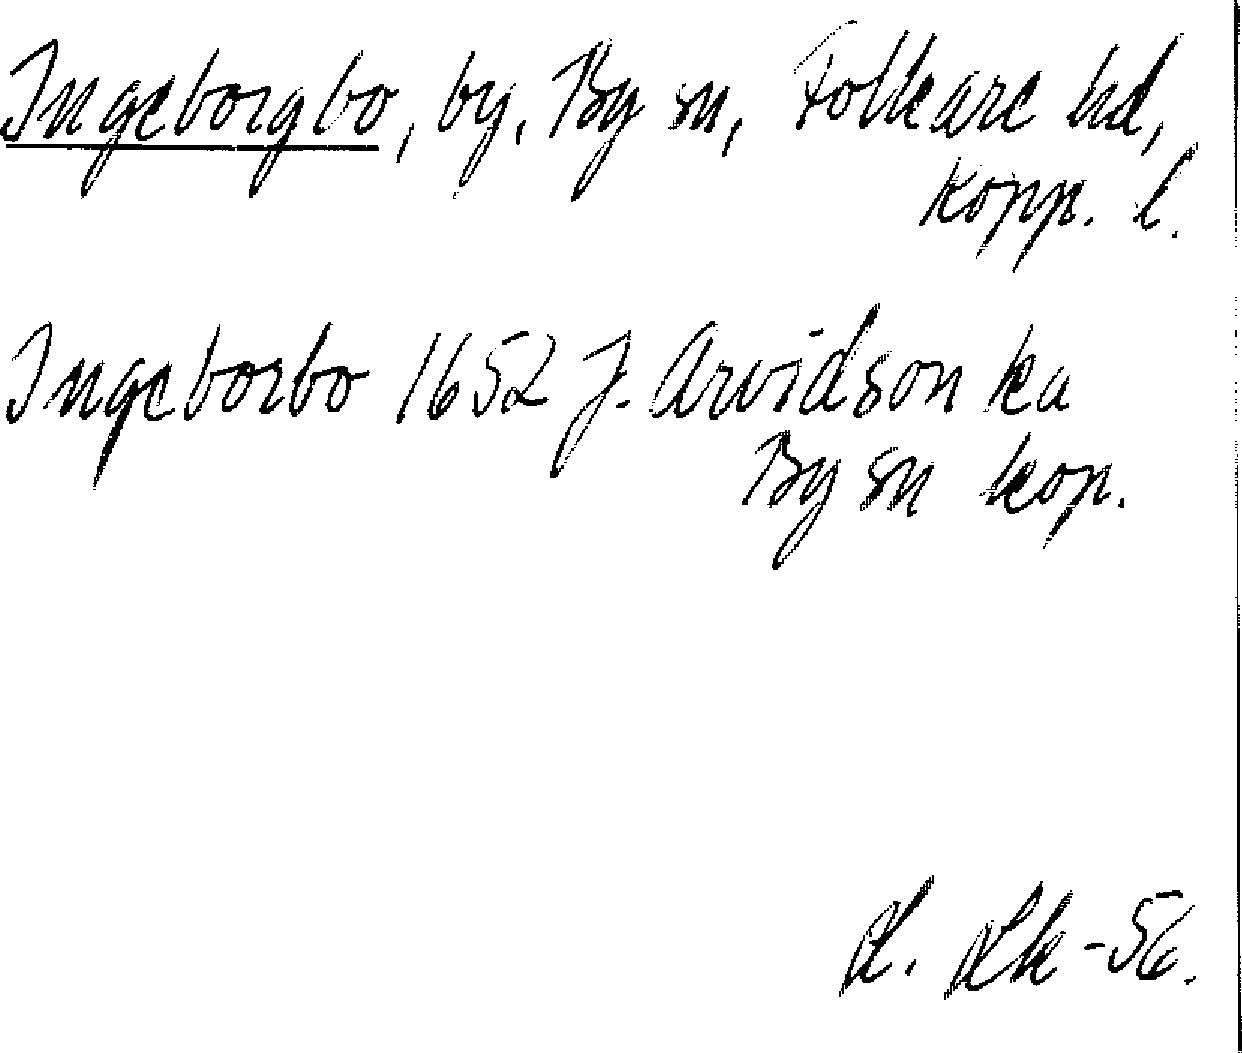 Ingeborgbo, by, By sn, Folkare hd,
Kopp. l.
Ingeborbo 1652 J. Arvidson ka
By sn kop.
-56.